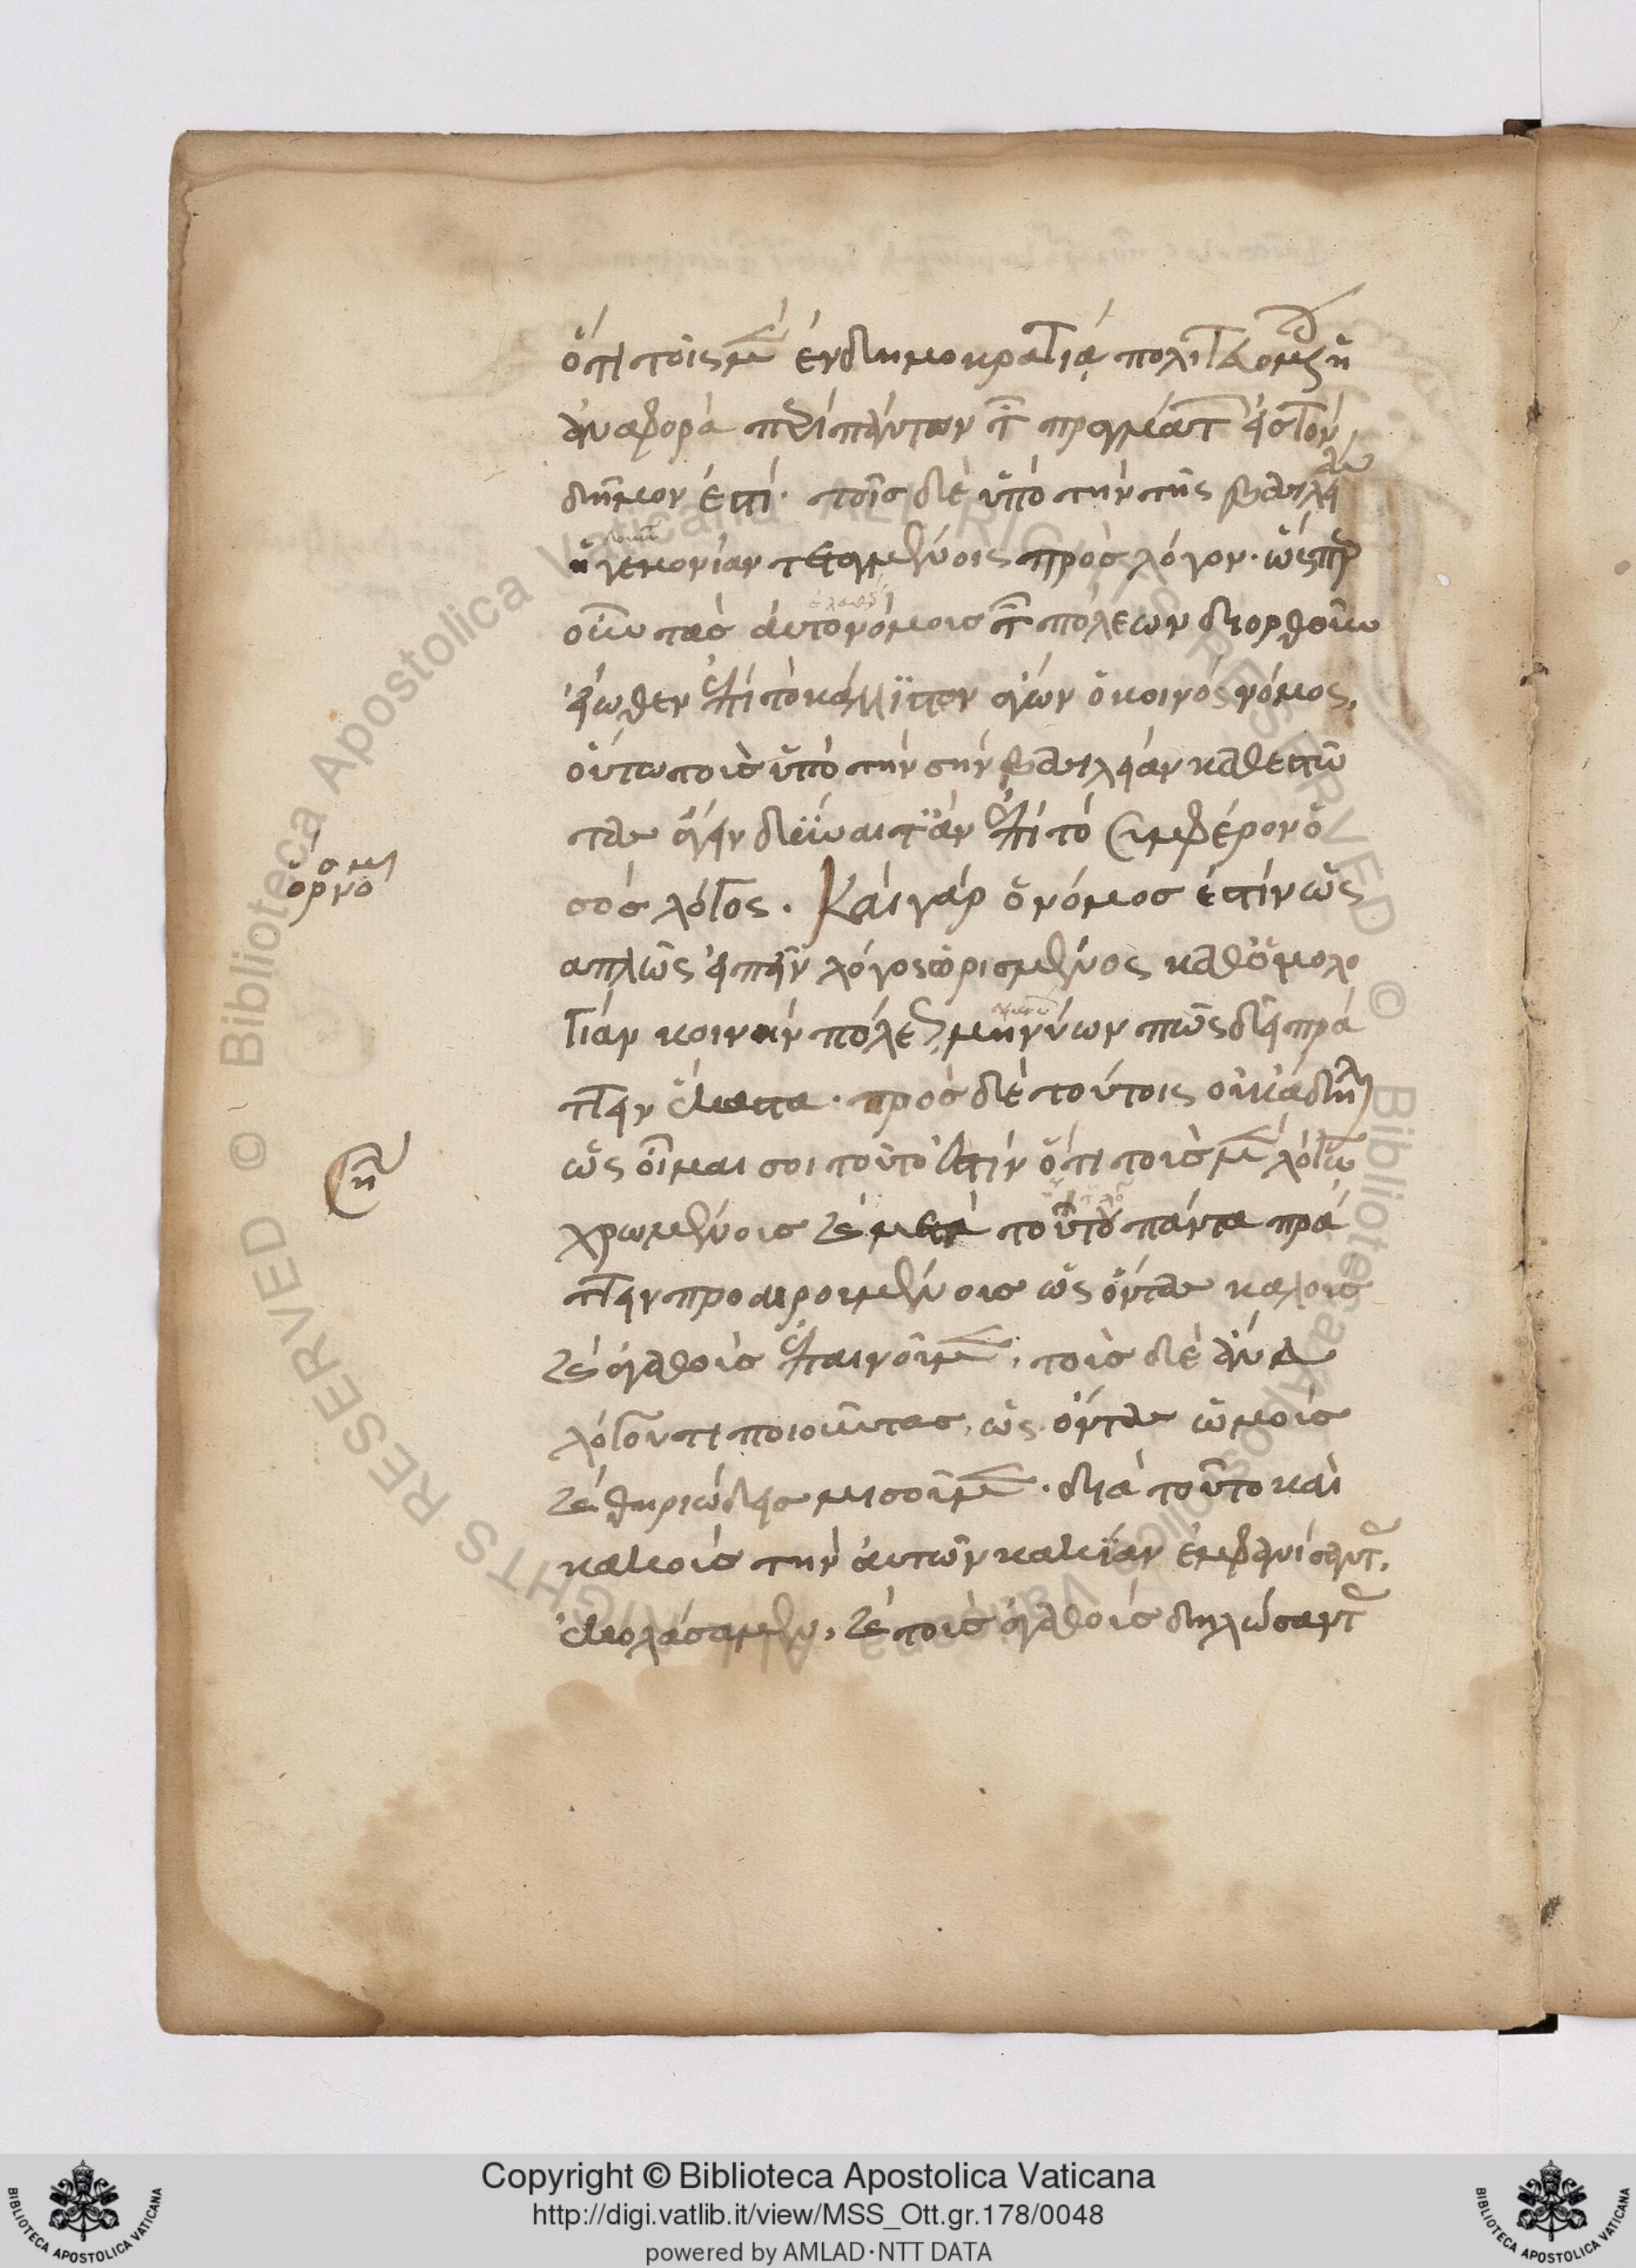 ὅτι τοῖς μὲν ἐν δημοκρατίᾳ πολιτευομένοις ἡ
ἀναφορὰ περὶ πάντων τῶν πραγμάτων εἰς τὸν
δῆμον ἐστί· τοῖς δὲ ὑπὸ τὴν τῆς βασιλείας
ἡγεμονίαν τεταγμένοις πρὸς λόγον· ὥσπερ
οὖν τὰς αὐτονόμους τῶν πόλεων διορθοῦν
εἴωθεν ἐπὶ τὸ κάλλιστον ἄγων ὁ κοινὸς νόμος,
οὕτω τοὺς ὑπὸ τὴν σὴν βασιλείαν καθεστῶ
τας ἄγειν δύναιτ' ἂν ἐπὶ τὸ συμφέρον ὁ
σὸς λόγος. Καὶ γὰρ ὁ νόμος ἐστὶν ὡς
ὅρος νόμου
ἁπλῶς εἰπεῖν λόγος ὡρισμένος καθ' ὁμολο
γίαν κοινὴν πόλεως, μηνύων πῶς δεῖ πρά
τειν ἕκαστα· πρὸς δὲ τούτοις οὐκ ἄδηλον
ὡς οἶμαι σοι τοῦτό ἐστιν ὅτι τοὺς μὲν λόγῳ
χρωμένους καὶ μετὰ τούτου πάντα πρά
τειν προαιρουμένους ὡς ὄντας καλοὺς
καὶ ἀγαθοὺς ἐπαινοῦμεν, τοὺς δὲ ἄνευ
λόγου τι ποιοῦντας, ὡς ὄντας ὠμοὺς
καὶ θηριώδεις μισοῦμεν· διὰ τοῦτο καὶ
κακοὺς τὴν αὐτῶν κακίαν ἐμφανίσαντας,
ἐκολάσαμεν, καὶ τοὺς ἀγαθοὺς δηλώσαντας
Copyright © Biblioteca Apostolica Vaticana
http://digi.vatlib.it/view/MSS_Ott.gr.178/0048
powered by AMLAD·NTT DATA